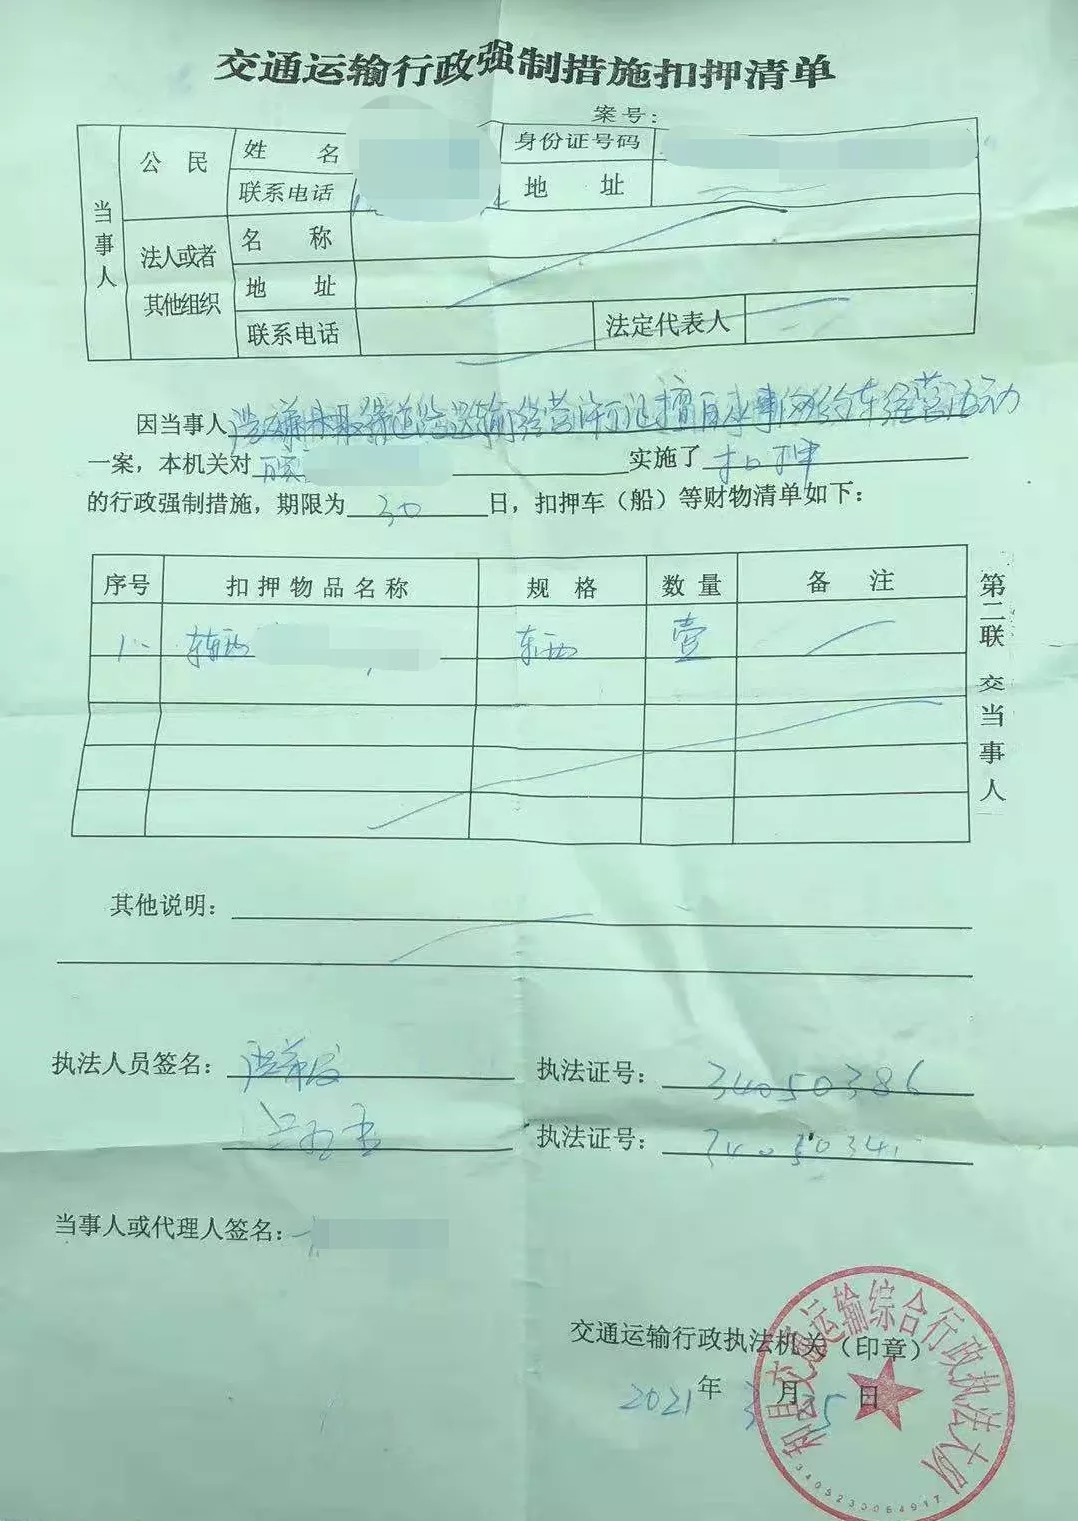 交通运输行政强制措施扣押清单
案号：
当事人
公民
姓名
身份证号码
联系电话
地址
法人或者其他组织
名称
地址
联系电话
法定代表人
因当事人涉嫌未取得道路运输经营许可证擅自从事网约车经营活动
一案，本机关对 实施了 扣押
的行政强制措施，期限为 30 日，扣押车（船）等财物清单如下：
序号 扣押物品名称 规格 数量 备注
1、 车辆 壹
第二联 交当事人
其他说明：
执法人员签名： 执法证号： 34050386
执法证号：
当事人或代理人签名：
交通运输行政执法机关（印章）
2021年3月25日
和县交通运输综合行政执法大队
3405230064917